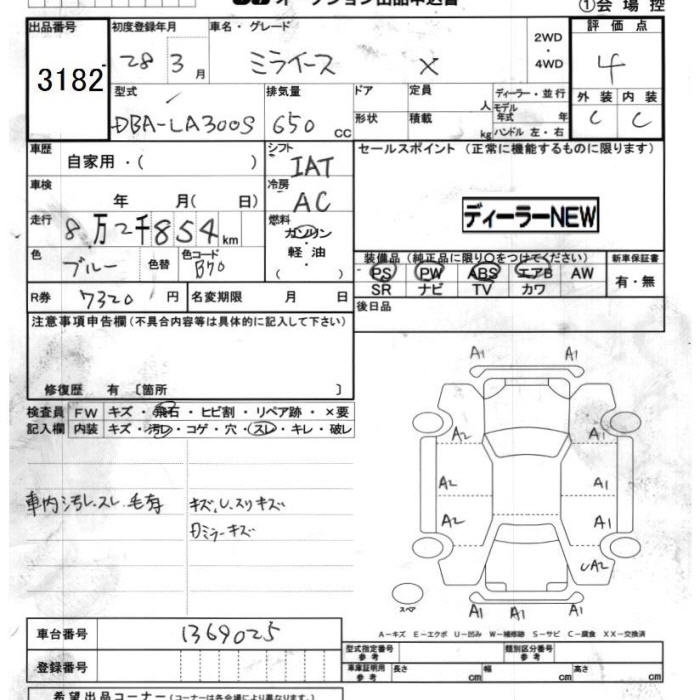 オークション出品申込書
①会場控
出品番号 初度登録年月 車名・グレード 評価点
3182 28 3月 ミライース X 2WD・4WD 4
型式 排気量 ドア 定員 人 ディーラー・並行 外装 内装
DBA-LA300S 650 cc 形状 積載 kg モデル年式 年 ハンドル 左・右 C C
車歴 自家用・( ) シフト IAT セールスポイント (正常に機能するものに限ります)
車検 年 月( 日) 冷房 AC
ディーラーNEW
走行 8万2千854km 燃料 ガソリン・軽油 ( )
色 ブルー 色替 色コード B70
装備品 (純正品に限り○をつけてください) 新車保証書
PS PW ABS エアB AW 有・無
SR ナビ TV カワ
R券 7320円 名変期限 月 日 後日品
注意事項申告欄(不具合内容等は具体的に記入して下さい)
修復歴 有 〔箇所 〕
検査員 FW キズ・飛石・ヒビ割・リペア跡・×要
記入欄 内装 キズ・汚レ・コゲ・穴・スレ・キレ・破レ
A1 A1
A2 A1
A2 A1
A2 A1
A2
A1 A1
車内汚レ、スレ 毛有 キズ
ミラーキズ
スペア
A-キズ E-エクボ U-凹み W-補修跡 S-サビ C-腐食 XX-交換済
車台番号 1369025
型式指定番号 類別区分番号
参考 参考
登録番号
車庫証明用参考 長さ cm 幅 cm 高さ cm
希望出品コーナー(コーナーは各会場により異なります)